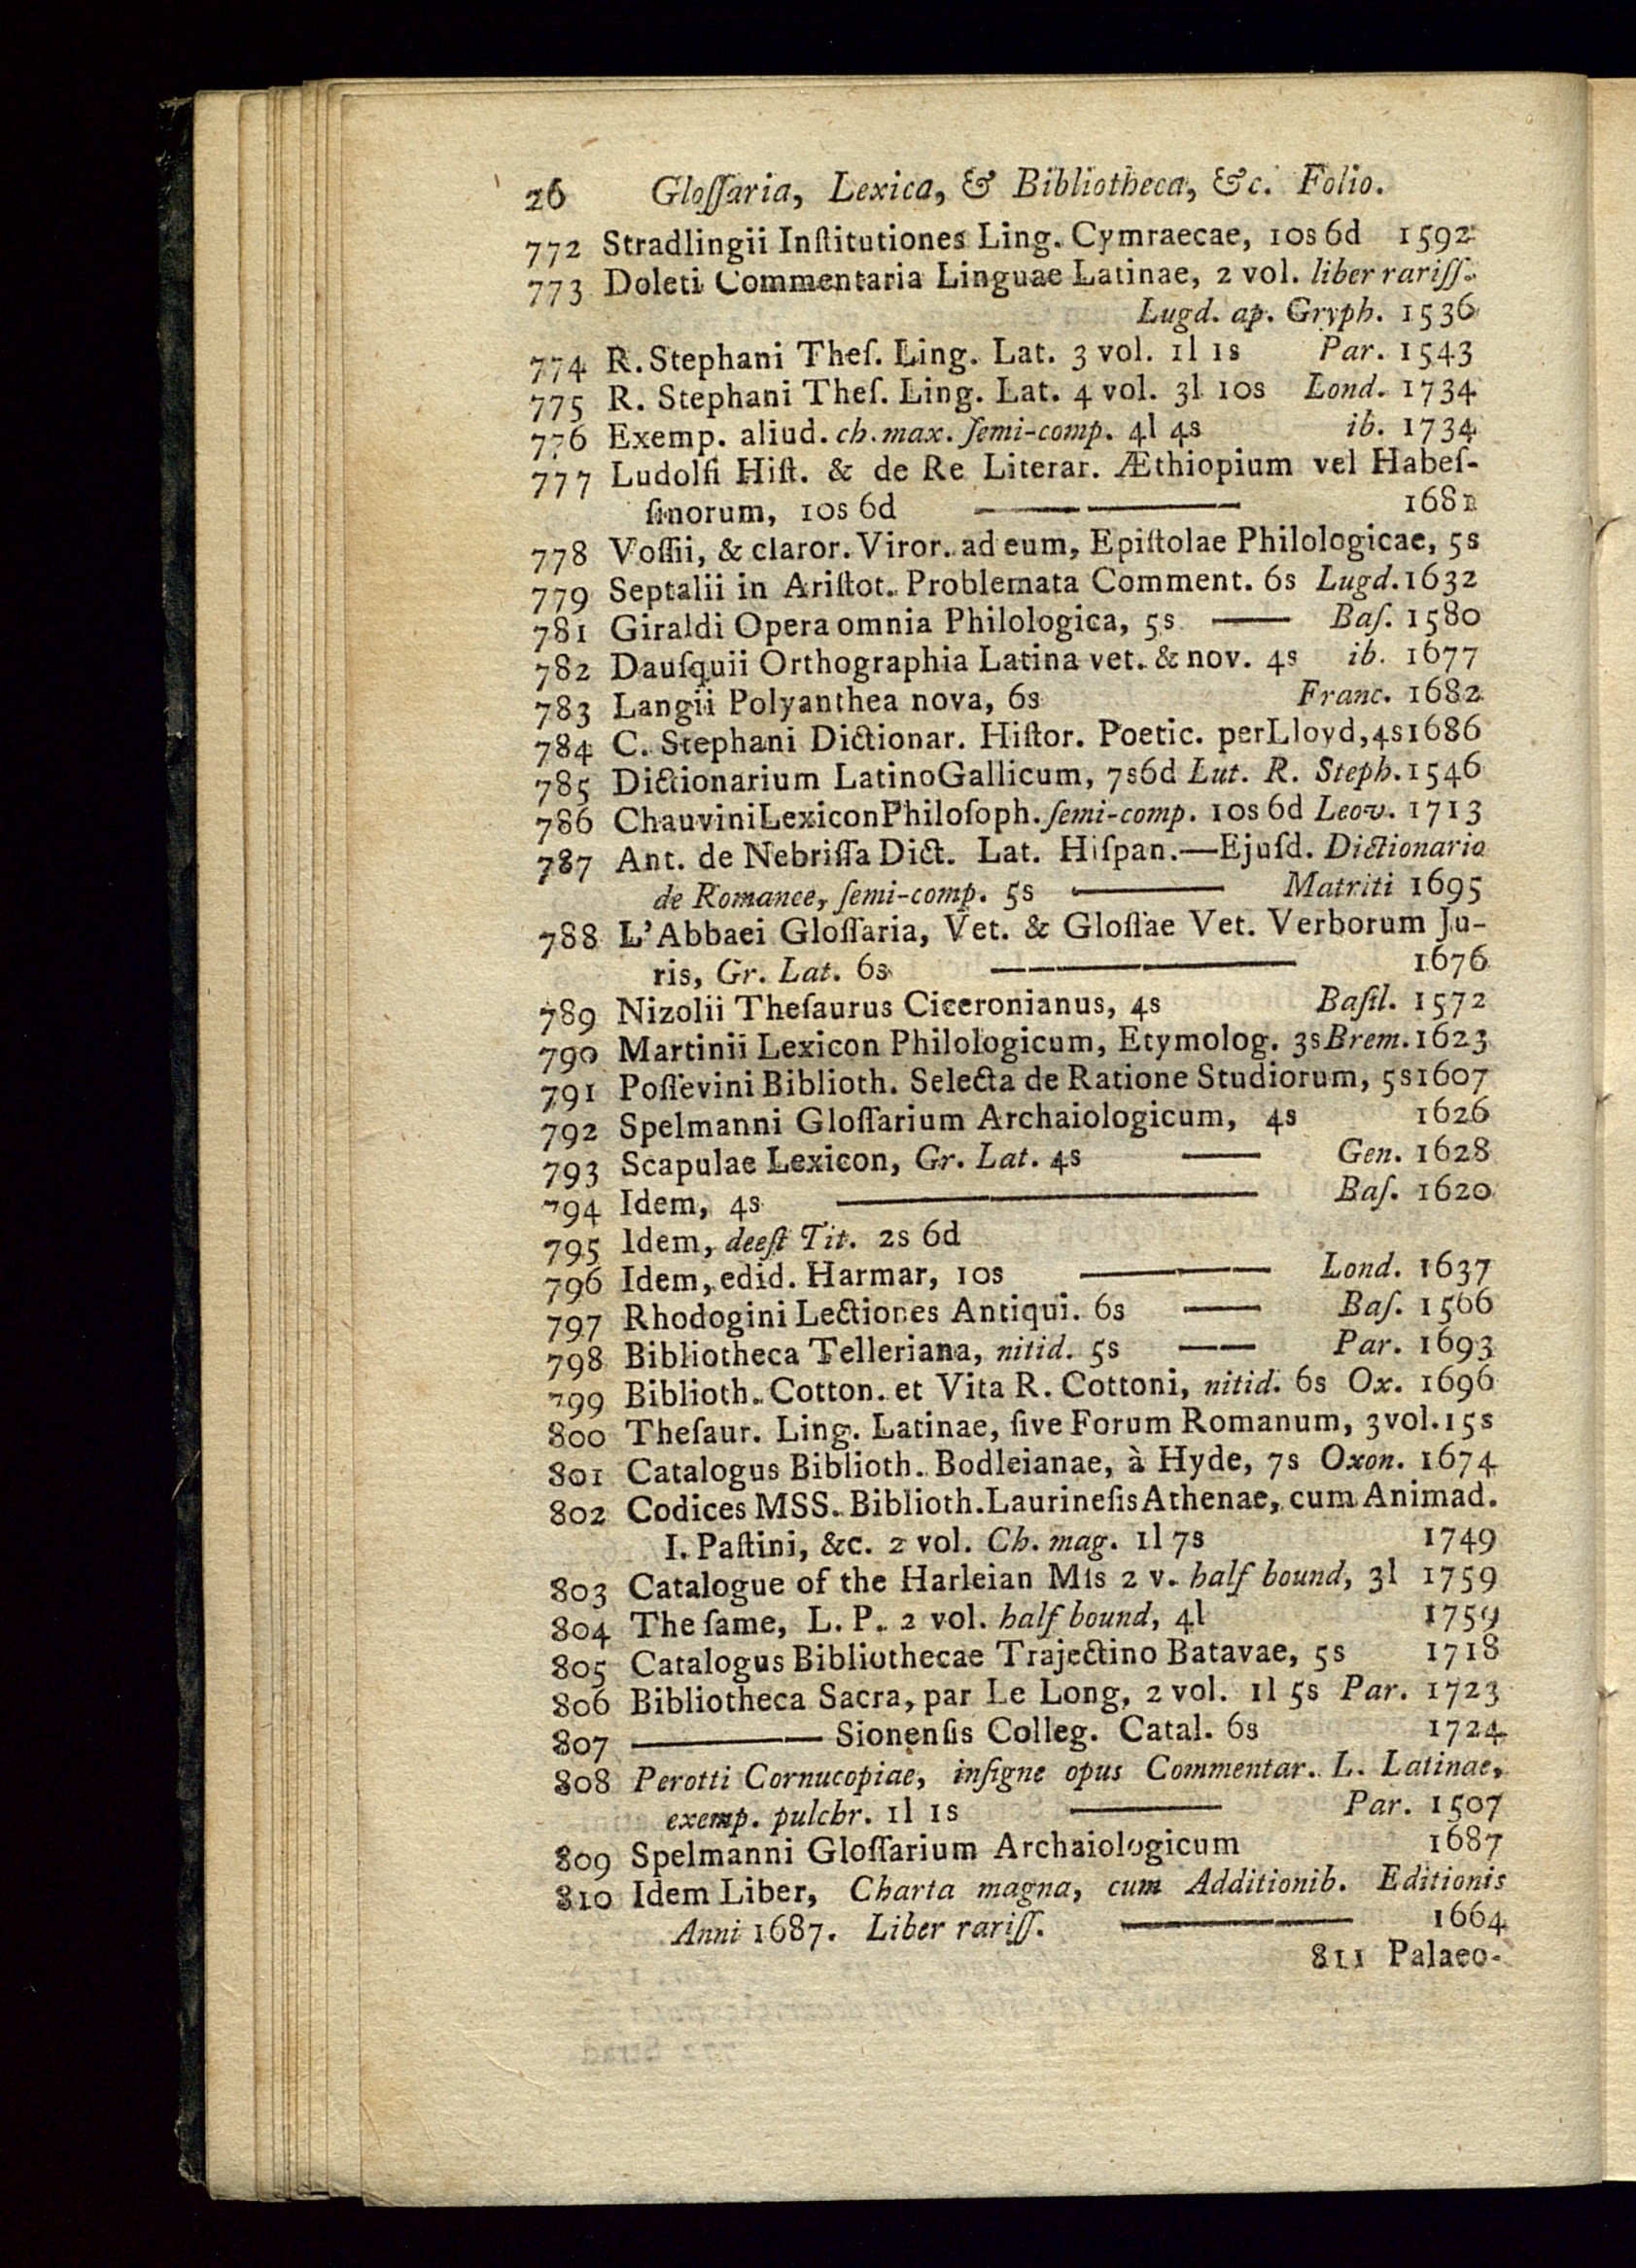 26 Gloſſaria, Lexica, & Bibliotheca, &c. Folio.
772 Stradlingii Inſtitutiones Ling. Cymraecae, 10s 6d 1592
773 Doleti Commentaria Linguae Latinae, 2 vol. liber rariſſ.
Lugd. ap. Gryph. 1536
774 R. Stephani Theſ. Ling. Lat. 3 vol. 1l 1s Par. 1543
775 R. Stephani Theſ. Ling. Lat. 4 vol. 3l 10s Lond. 1734
776 Exemp. aliud. ch. max. ſemi-comp. 4l 4s ib. 1734
777 Ludolfi Hiſt. & de Re Literar. Æthiopium vel Habeſ-
ſinorum, 10s 6d —— 1681
778 Voſſii, & claror. Viror. ad eum, Epiſtolae Philologicae, 5s
779 Septalii in Ariſtot. Problemata Comment. 6s Lugd. 1632
781 Giraldi Opera omnia Philologica, 5s —— Baſ. 1580
782 Dauſquii Orthographia Latina vet. & nov. 4s ib. 1677
783 Langii Polyanthea nova, 6s Franc. 1682
784 C. Stephani Dictionar. Hiſtor. Poetic. per Lloyd, 4s 1686
785 Dictionarium Latino Gallicum, 7s6d Lut. R. Steph. 1546
786 Chauvini Lexicon Philoſoph. ſemi-comp. 10s 6d Leov. 1713
787 Ant. de Nebriſſa Dict. Lat. Hiſpan.—Ejuſd. Dictionario
de Romance, ſemi-comp. 5s —— Matriti 1695
788 L'Abbaei Gloſſaria, Vet. & Gloſſae Vet. Verborum Ju-
ris, Gr. Lat. 6s —— 1676
789 Nizolii Theſaurus Ciceronianus, 4s Baſil. 1572
790 Martinii Lexicon Philologicum, Etymolog. 3s Brem. 1623
791 Poſſevini Biblioth. Selecta de Ratione Studiorum, 5s 1607
792 Spelmanni Gloſſarium Archaiologicum, 4s 1626
793 Scapulae Lexicon, Gr. Lat. 4s —— Gen. 1628
794 Idem, 4s —— Baſ. 1620
795 Idem, deeſt Tit. 2s 6d
796 Idem, edid. Harmar, 10s —— Lond. 1637
797 Rhodogini Lectiones Antiqui. 6s —— Baſ. 1566
798 Bibliotheca Telleriana, nitid. 5s —— Par. 1693
799 Biblioth. Cotton. et Vita R. Cottoni, nitid. 6s Ox. 1696
800 Theſaur. Ling. Latinae, ſive Forum Romanum, 3 vol. 15s
801 Catalogus Biblioth. Bodleianae, à Hyde, 7s Oxon. 1674
802 Codices MSS. Biblioth. Laurineſis Athenae, cum Animad.
I. Paſtini, &c. 2 vol. Ch. mag. 1l 7s 1749
803 Catalogue of the Harleian Mſs 2 v. half bound, 3l 1759
804 The ſame, L. P. 2 vol. half bound, 4l 1759
805 Catalogus Bibliothecae Trajectino Batavae, 5s 1718
806 Bibliotheca Sacra, par Le Long, 2 vol. 1l 5s Par. 1723
807 —— Sionenſis Colleg. Catal. 6s 1724
808 Perotti Cornucopiae, inſigne opus Commentar. L. Latinae,
exemp. pulchr. 1l 1s —— Par. 1507
809 Spelmanni Gloſſarium Archaiologicum 1687
810 Idem Liber, Charta magna, cum Additionib. Editionis
Anni 1687. Liber rariſſ. —— 1664
811 Palaeo-